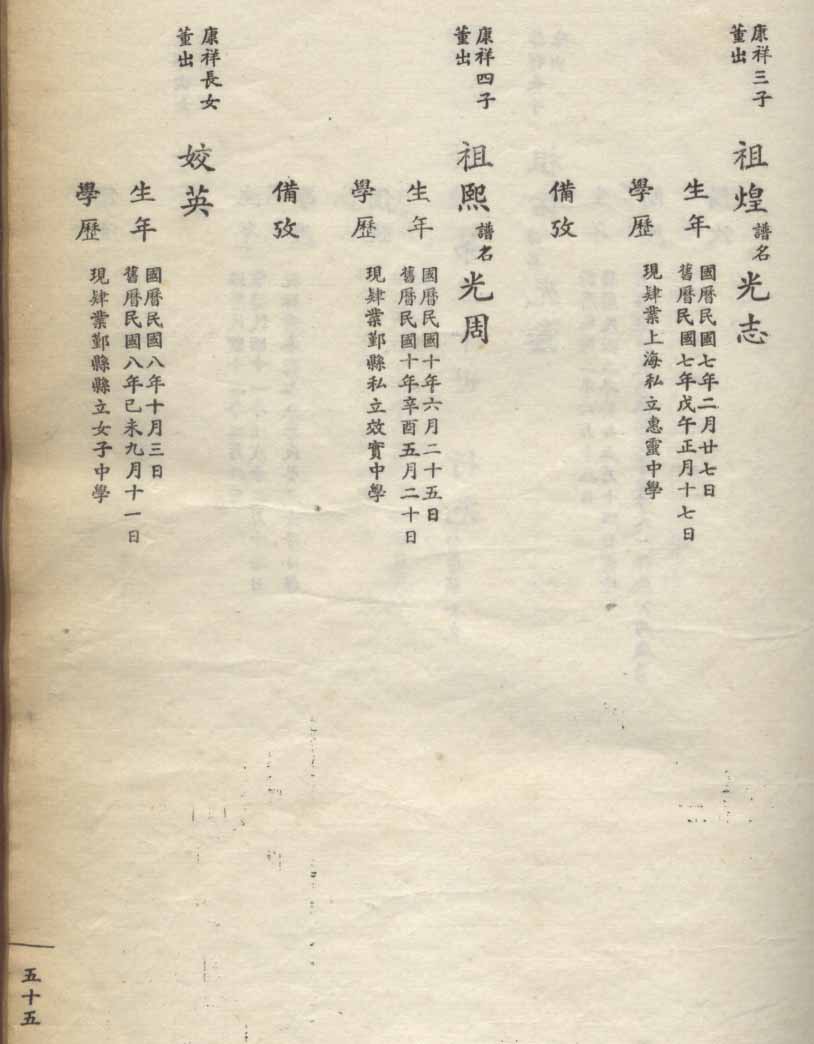 康祥三子
董出
祖煌 譜名 光志
生年
國曆民國七年二月廿七日
舊曆民國七年戊午正月十七日
學歷
現肄業上海私立惠靈中學
備攷
康祥四子
董出
祖熙 譜名 光周
生年
國曆民國十年六月二十五日
舊曆民國十年辛酉五月二十日
學歷
現肄業鄞縣私立效實中學
備攷
康祥長女
董出
姣英
生年
國曆民國八年十月三日
舊曆民國八年己未九月十一日
學歷
現肄業鄞縣縣立女子中學
五十五